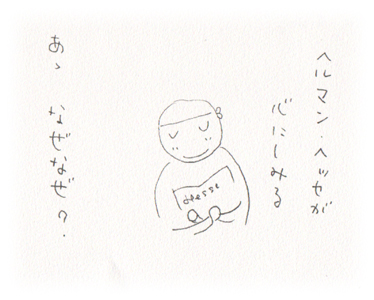 ヘルマン・ヘッセが
心にしみる
あゝ なぜなぜ?
Hesse